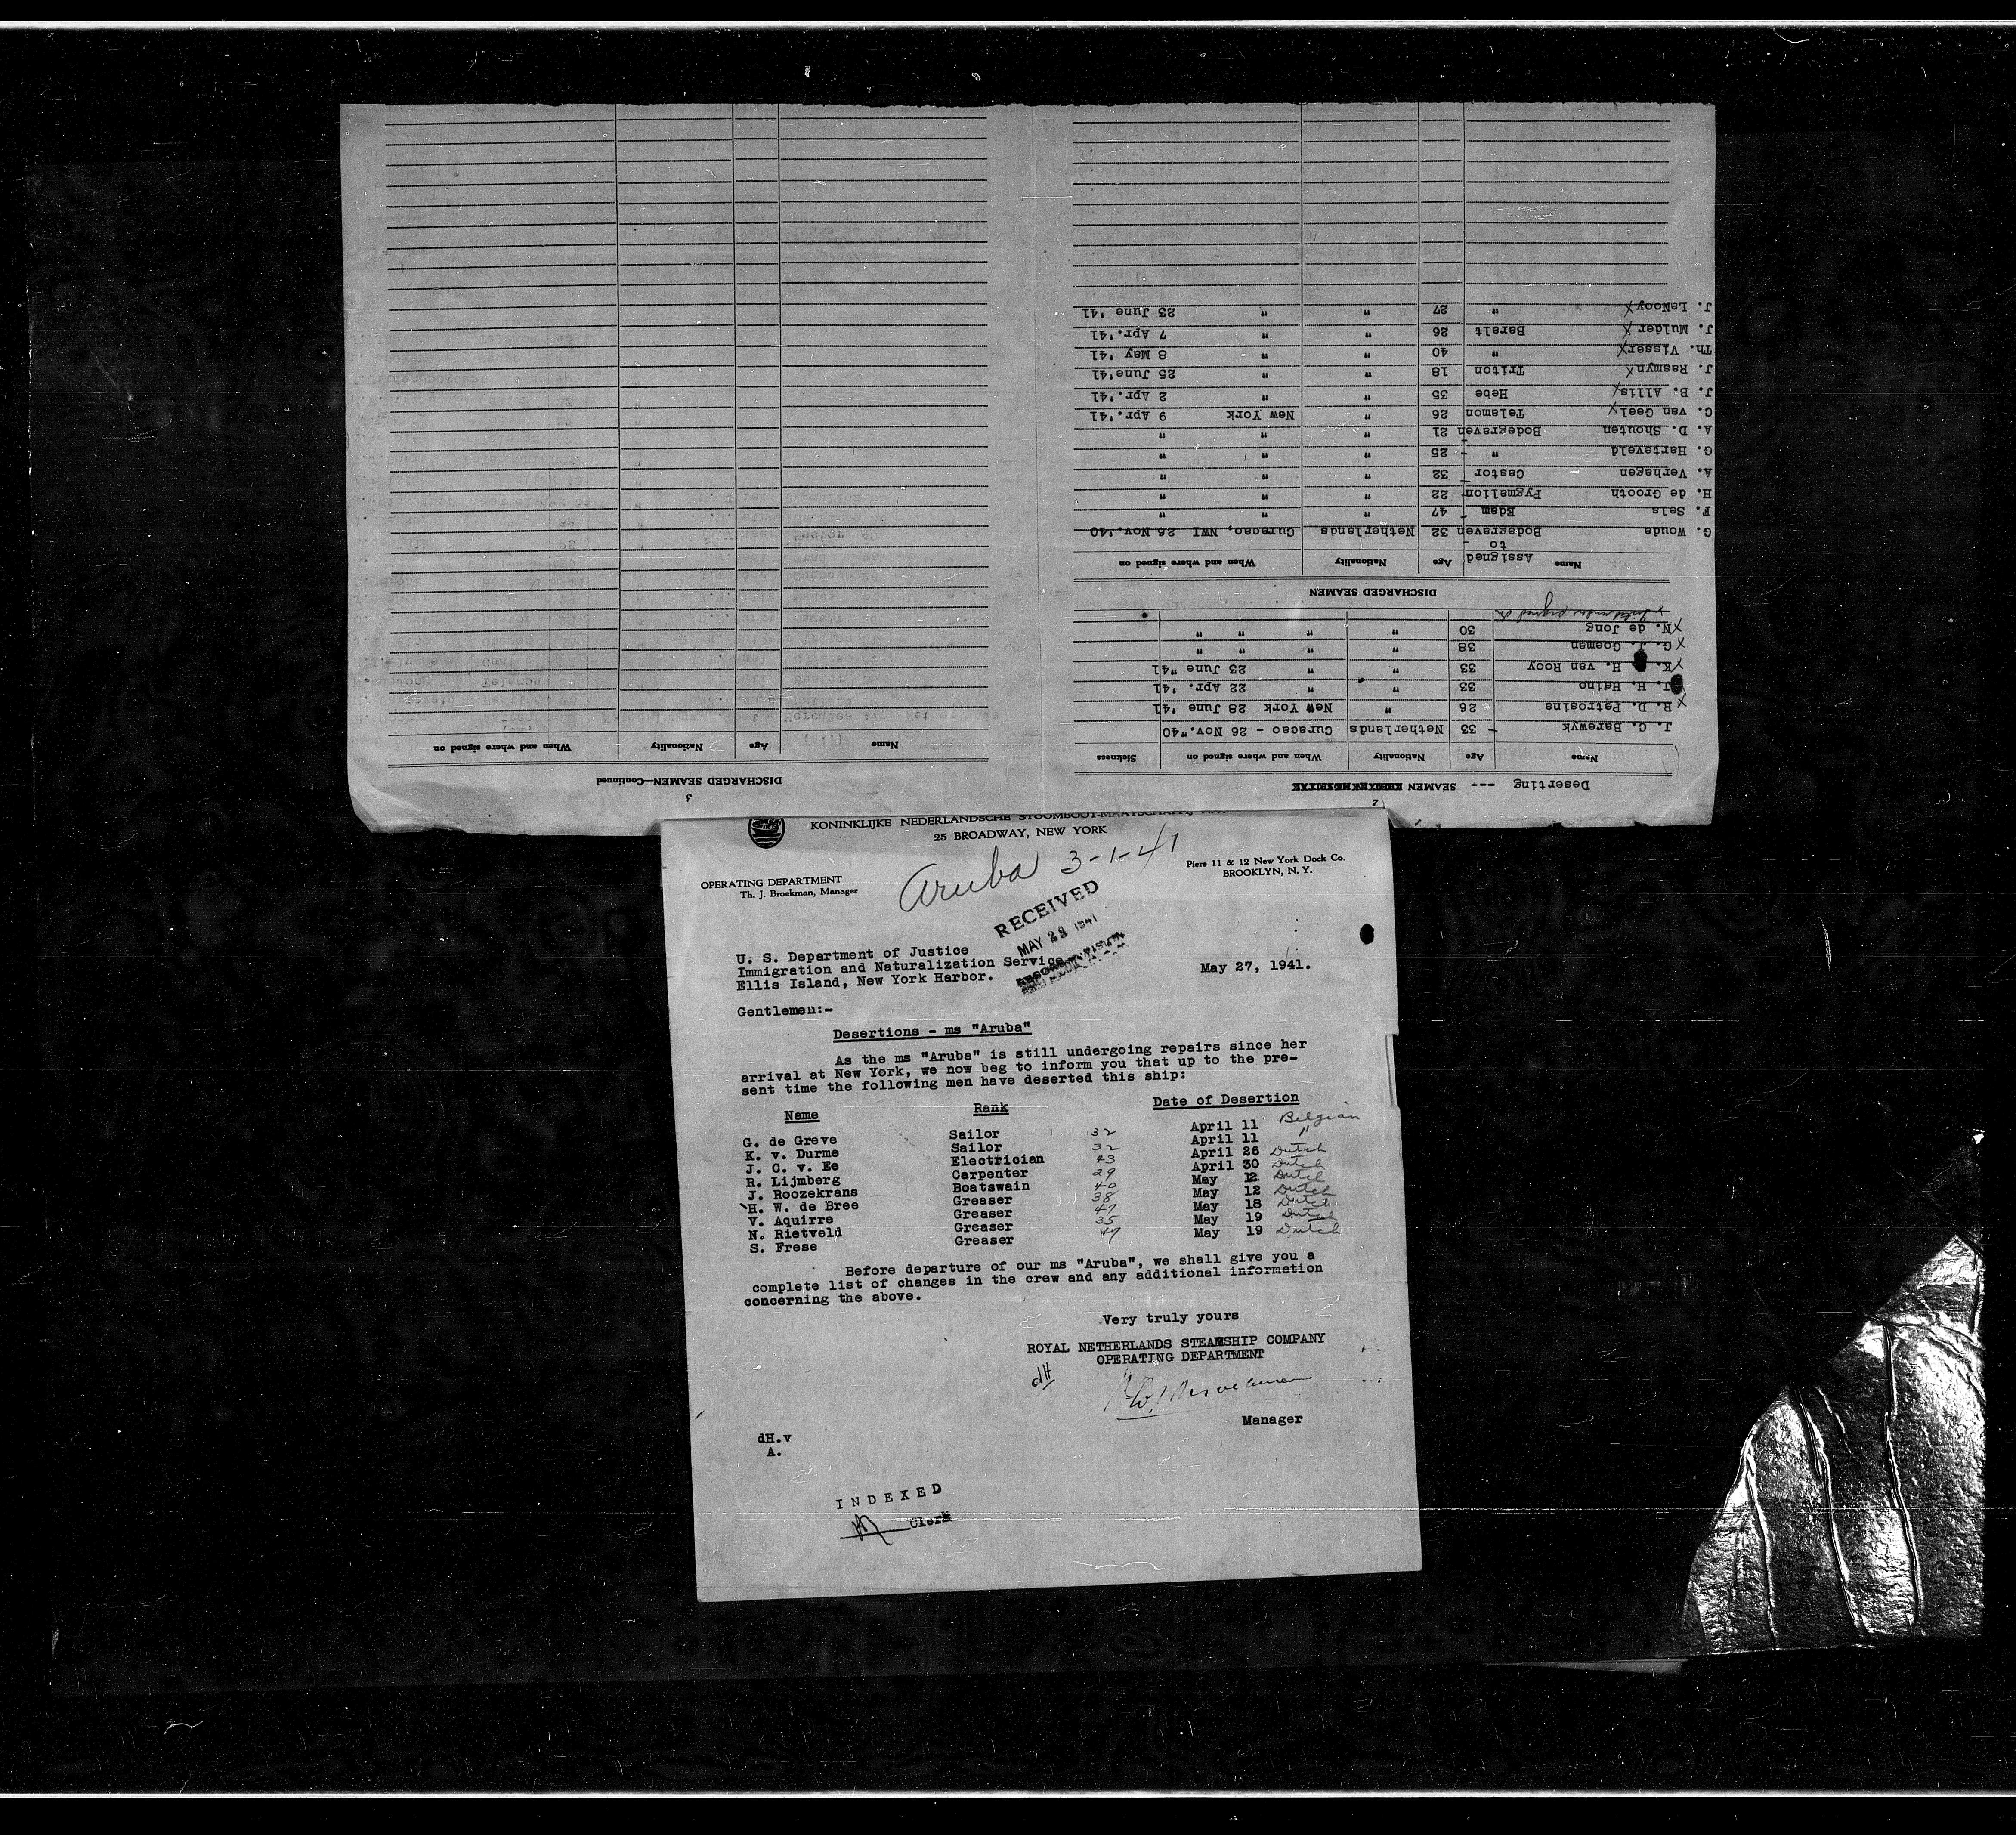 2
Deserting --- SEAMEN
Name Age Nationality When and where signed on Sickness
J. C. Barewyk - 33 Netherlands Curacao - 26 Nov."40
X R. D. Petrosine 26 " New York 28 June '41
J. H. Heino 33 " " 22 Apr. '41
X K. H. van Rooy 33 " " 23 June "41
X G. J. Goeman 38 " " " "
X N. de Jong 30 " " " "
x Listed under signed on
DISCHARGED SEAMEN
Name Assigned to Age Nationality When and where signed on
G. Wouda Bodegraven 32 Netherlands Curacao, NWI 26 Nov.'40
F. Sels Edam - 47 " " "
H. de Grooth Pygmelion 22 " " "
A. Verhagen Castor 32 " " "
G. Harteveld " - 25 " " "
A. D. Shouten Bodegraven 21 " " "
C. van Geel X Telamon 26 " New York 9 Apr.'41
J. B. Allis X Hebe 35 " " 2 Apr.'41
J. Rasmyn X Triton 18 " " 25 June'41
Th. Visser X " 40 " " 8 May '41
J. Mulder X Baralt 26 " " 7 Apr.'41
J. LeNooy X " 27 " " 23 June '41
3
DISCHARGED SEAMEN—Continued
Name Age Nationality When and where signed on
KONINKLIJKE NEDERLANDSCHE STOOMBOOT-MAATSCHAPPIJ N.V.
25 BROADWAY, NEW YORK
Aruba 3-1-41
OPERATING DEPARTMENT
Th. J. Broekman, Manager
Piers 11 & 12 New York Dock Co.
BROOKLYN, N. Y.
RECEIVED
MAY 28 1941
U. S. Department of Justice
Immigration and Naturalization Service
Ellis Island, New York Harbor.
May 27, 1941.
Gentlemen:-
Desertions - ms "Aruba"
As the ms "Aruba" is still undergoing repairs since her
arrival at New York, we now beg to inform you that up to the pre-
sent time the following men have deserted this ship:
Name Rank Date of Desertion
G. de Greve Sailor 32 April 11 Belgian
K. v. Durme Sailor 32 April 11 "
J. C. v. Ee Electrician 43 April 26 Dutch
R. Lijmberg Carpenter 29 April 30 Dutch
J. Roozekrans Boatswain 40 May 12 Dutch
H. W. de Bree Greaser 38 May 12 Dutch
V. Aquirre Greaser 47 May 18 Dutch
N. Rietveld Greaser 35 May 19 Dutch
S. Frese Greaser 47 May 19 Dutch
Before departure of our ms "Aruba", we shall give you a
complete list of changes in the crew and any additional information
concerning the above.
Very truly yours
ROYAL NETHERLANDS STEAMSHIP COMPANY
OPERATING DEPARTMENT
dH
Manager
dH.v
A.
INDEXED
Clerk